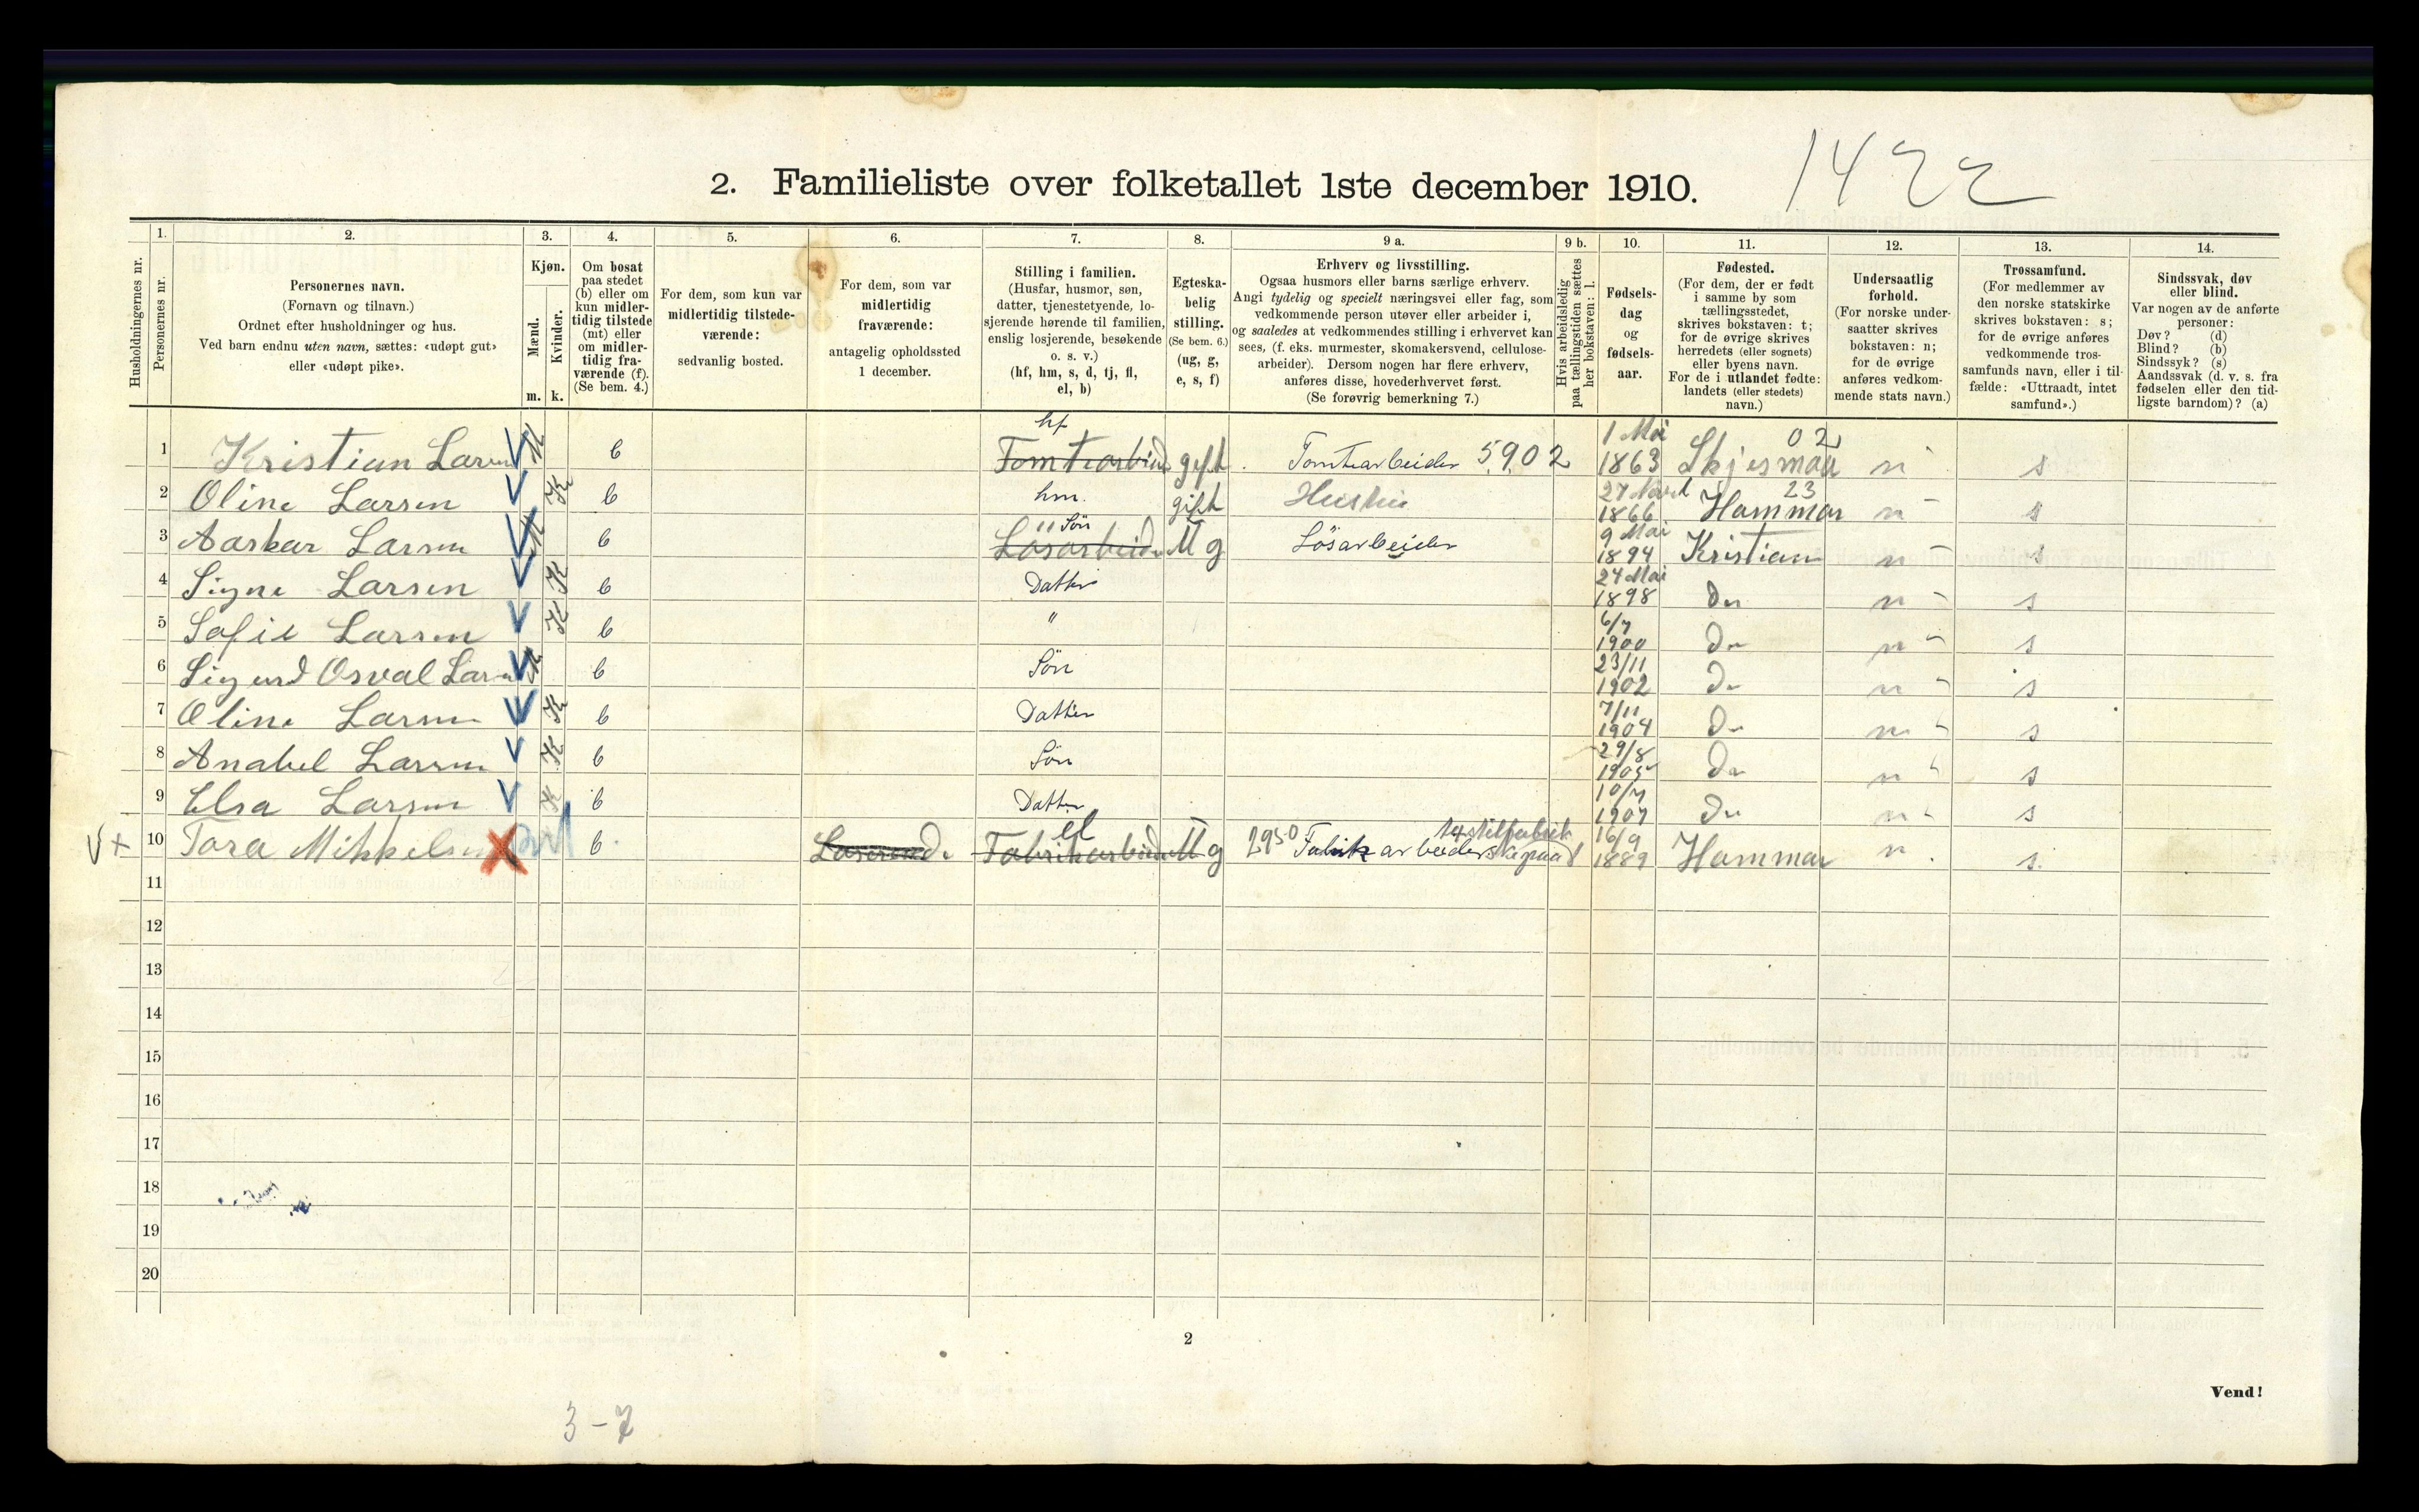 1422
2. Familieliste over folketallet 1ste december 1910.
Husholdningernes nr.
1.
Personernes nr.
2.
Personernes navn.
(Fornavn og tilnavn.)
Ordnet efter husholdninger og hus.
Ved barn endnu uten navn, sættes: «udøpt gut»
eller «udøpt pike».
3.
Kjøn.
Mænd.
Kvinder.
m. k.
4.
Om bosat
paa stedet
(b) eller om
kun midler-
tidig tilstede
(mt) eller
om midler-
tidig fra-
værende (f).
(Se bem. 4.)
5.
For dem, som kun var
midlertidig tilstede-
værende:
sedvanlig bosted.
6.
For dem, som var
midlertidig
fraværende:
antagelig opholdssted
1 december.
7.
Stilling i familien.
(Husfar, husmor, søn,
datter, tjenestetyende, lo-
sjerende hørende til familien,
enslig losjerende, besøkende
o. s. v.)
(hf, hm, s, d, tj, fl,
el, b)
8.
Egteska-
belig
stilling.
(Se bem. 6.)
(ug, g,
e, s, f)
9 a.
Erhverv og livsstilling.
Ogsaa husmors eller barns særlige erhverv.
Angi tydelig og specielt næringsvei eller fag, som
vedkommende person utøver eller arbeider i,
og saaledes at vedkommendes stilling i erhvervet kan
sees, (f. eks. murmester, skomakersvend, cellulose-
arbeider). Dersom nogen har flere erhverv,
anføres disse, hovederhvervet først.
(Se forøvrig bemerkning 7.)
9 b.
Hvis arbeidsledig
paa tællingstiden sættes
her bokstaven: l.
10.
Fødsels-
dag
og
fødsels-
aar.
11.
Fødested.
(For dem, der er født
i samme by som
tællingsstedet,
skrives bokstaven: t;
for de øvrige skrives
herredets (eller sognets)
eller byens navn.
For de i utlandet fødte:
landets (eller stedets)
navn.)
12.
Undersaatlig
forhold.
(For norske under-
saatter skrives
bokstaven: n;
for de øvrige
anføres vedkom-
mende stats navn.)
13.
Trossamfund.
(For medlemmer av
den norske statskirke
skrives bokstaven: s;
for de øvrige anføres
vedkommende tros-
samfunds navn, eller i til-
fælde: «Uttraadt, intet
samfund».)
14.
Sindssvak, døv
eller blind.
Var nogen av de anførte
personer:
Døv? (d)
Blind? (b)
Sindssyk? (s)
Aandssvak (d. v. s. fra
fødselen eller den tid-
ligste barndom)? (a)
1 Kristian Larsen M b hf Tomtearbeid gift Tomtearbeider 5902 1 Mai 1863 02 n s
2 Oline Larsen K b hm. gift Hustru 1866 Hammar 23 n s
3 Aaskar Larsen M b Lösarbeider Sön Ug Lösarbeider 9 Mai 1894 Kristian n s
4 Signe Larsen K b Datter 24 Mai 1898 Do n s
5 Sofie Larsen K b " 6/7 1900 Do n s
6 Sigurd Osval Larsen M b Sön 23/11 1902 Do n s
7 Oline Larsen K b Datter 7/11 1904 Do n s
8 Anabel Larsen K b Sön 29/8 1905 Do n s
9 Elsa Larsen K b Datter 10/7 1907 Do n s
V + 10 Tora Mikkelsen b Loserende Fabrikarbeider el Ug 2950 Fabrikarbeiderske 16/9 1889 Hammar n s
11
12
13
14
15
16
17
18
19
20
2
Vend!
3-7